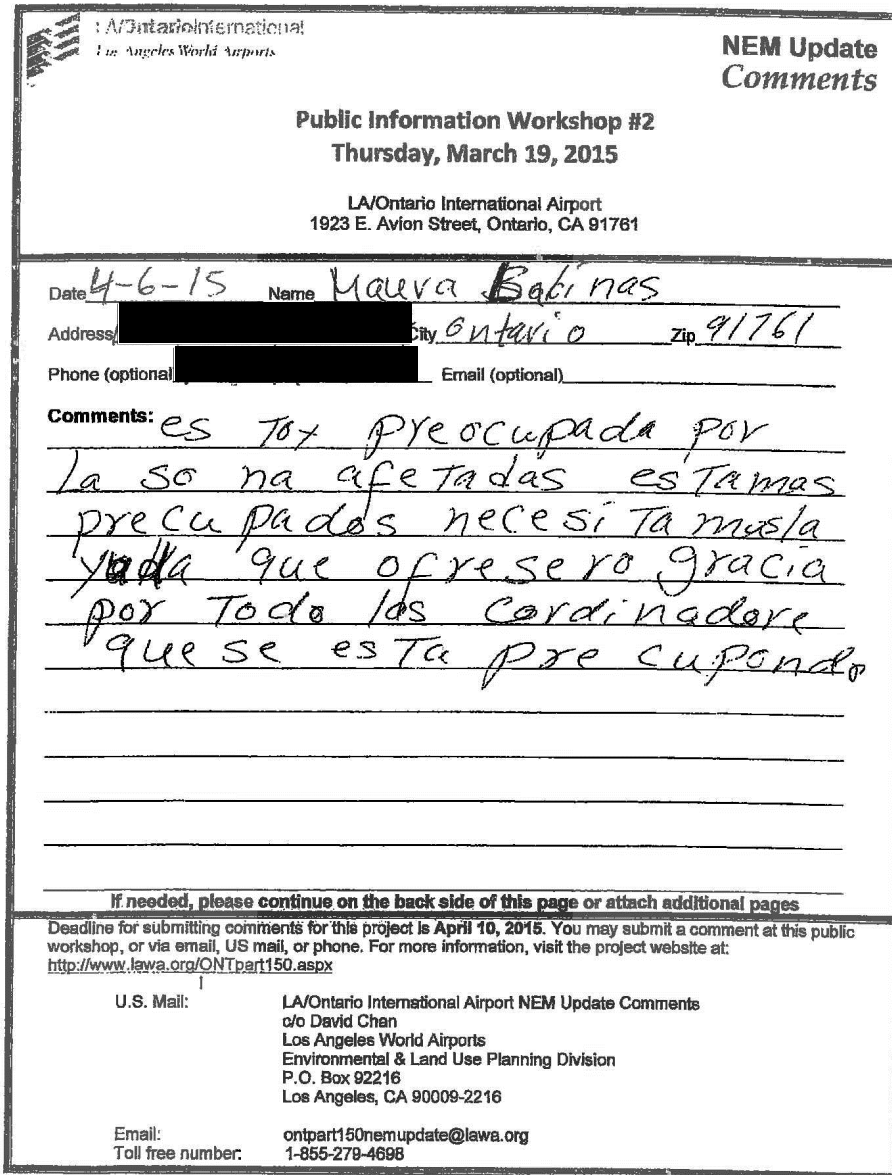 LA/OntarioInternational
Los Angeles World Airports
NEM Update
Comments
Public Information Workshop #2
Thursday, March 19, 2015
LA/Ontario International Airport
1923 E. Avion Street, Ontario, CA 91761
Date 4-6-15 Name Mauva
Address/ City Ontario Zip 91761
Phone (optional Email (optional)
Comments: es Toy preocupada por
La so na afeTadas esTamas
precupados necesiTamosla
que ofresero gracia
por Todo los Cordinadore
que se esTa precupondo
If needed, please continue on the back side of this page or attach additional pages
Deadline for submitting comments for this project is April 10, 2015. You may submit a comment at this public
workshop, or via email, US mail, or phone. For more information, visit the project website at:
http://www.lawa.org/ONTpart150.aspx
U.S. Mail: LA/Ontario International Airport NEM Update Comments
c/o David Chan
Los Angeles World Airports
Environmental & Land Use Planning Division
P.O. Box 92216
Los Angeles, CA 90009-2216
Email: ontpart150nemupdate@lawa.org
Toll free number: 1-855-279-4698